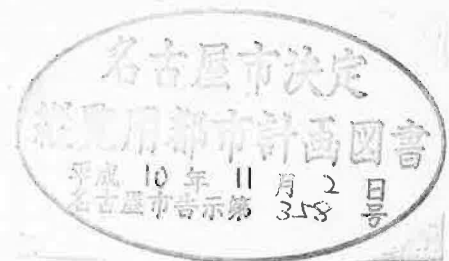 名古屋市決定
縦覧用都市計画図書
平成 10 年 11 月 2 日
名古屋市告示第 358 号